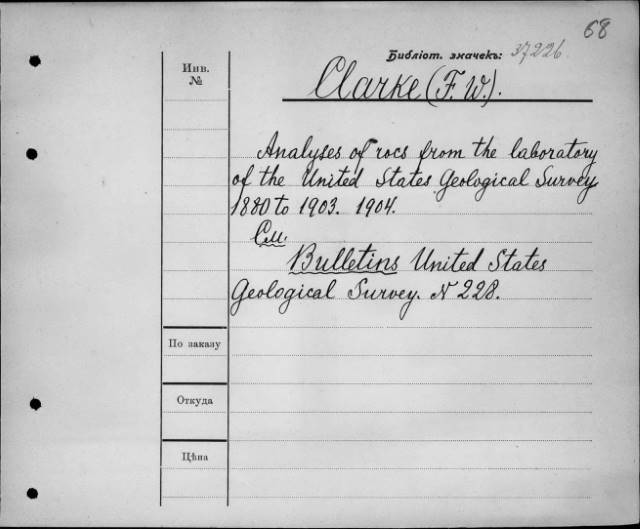 68
Библіот. значекъ: 37226
Инв.
№
Clarke (F. W.).
Analyses of rocs from the laboratory
of the United States Geological Survey
1880 to 1903. 1904.
См.
Bulletins United States
Geological Survey. N 228.
По заказу
Откуда
Цѣна